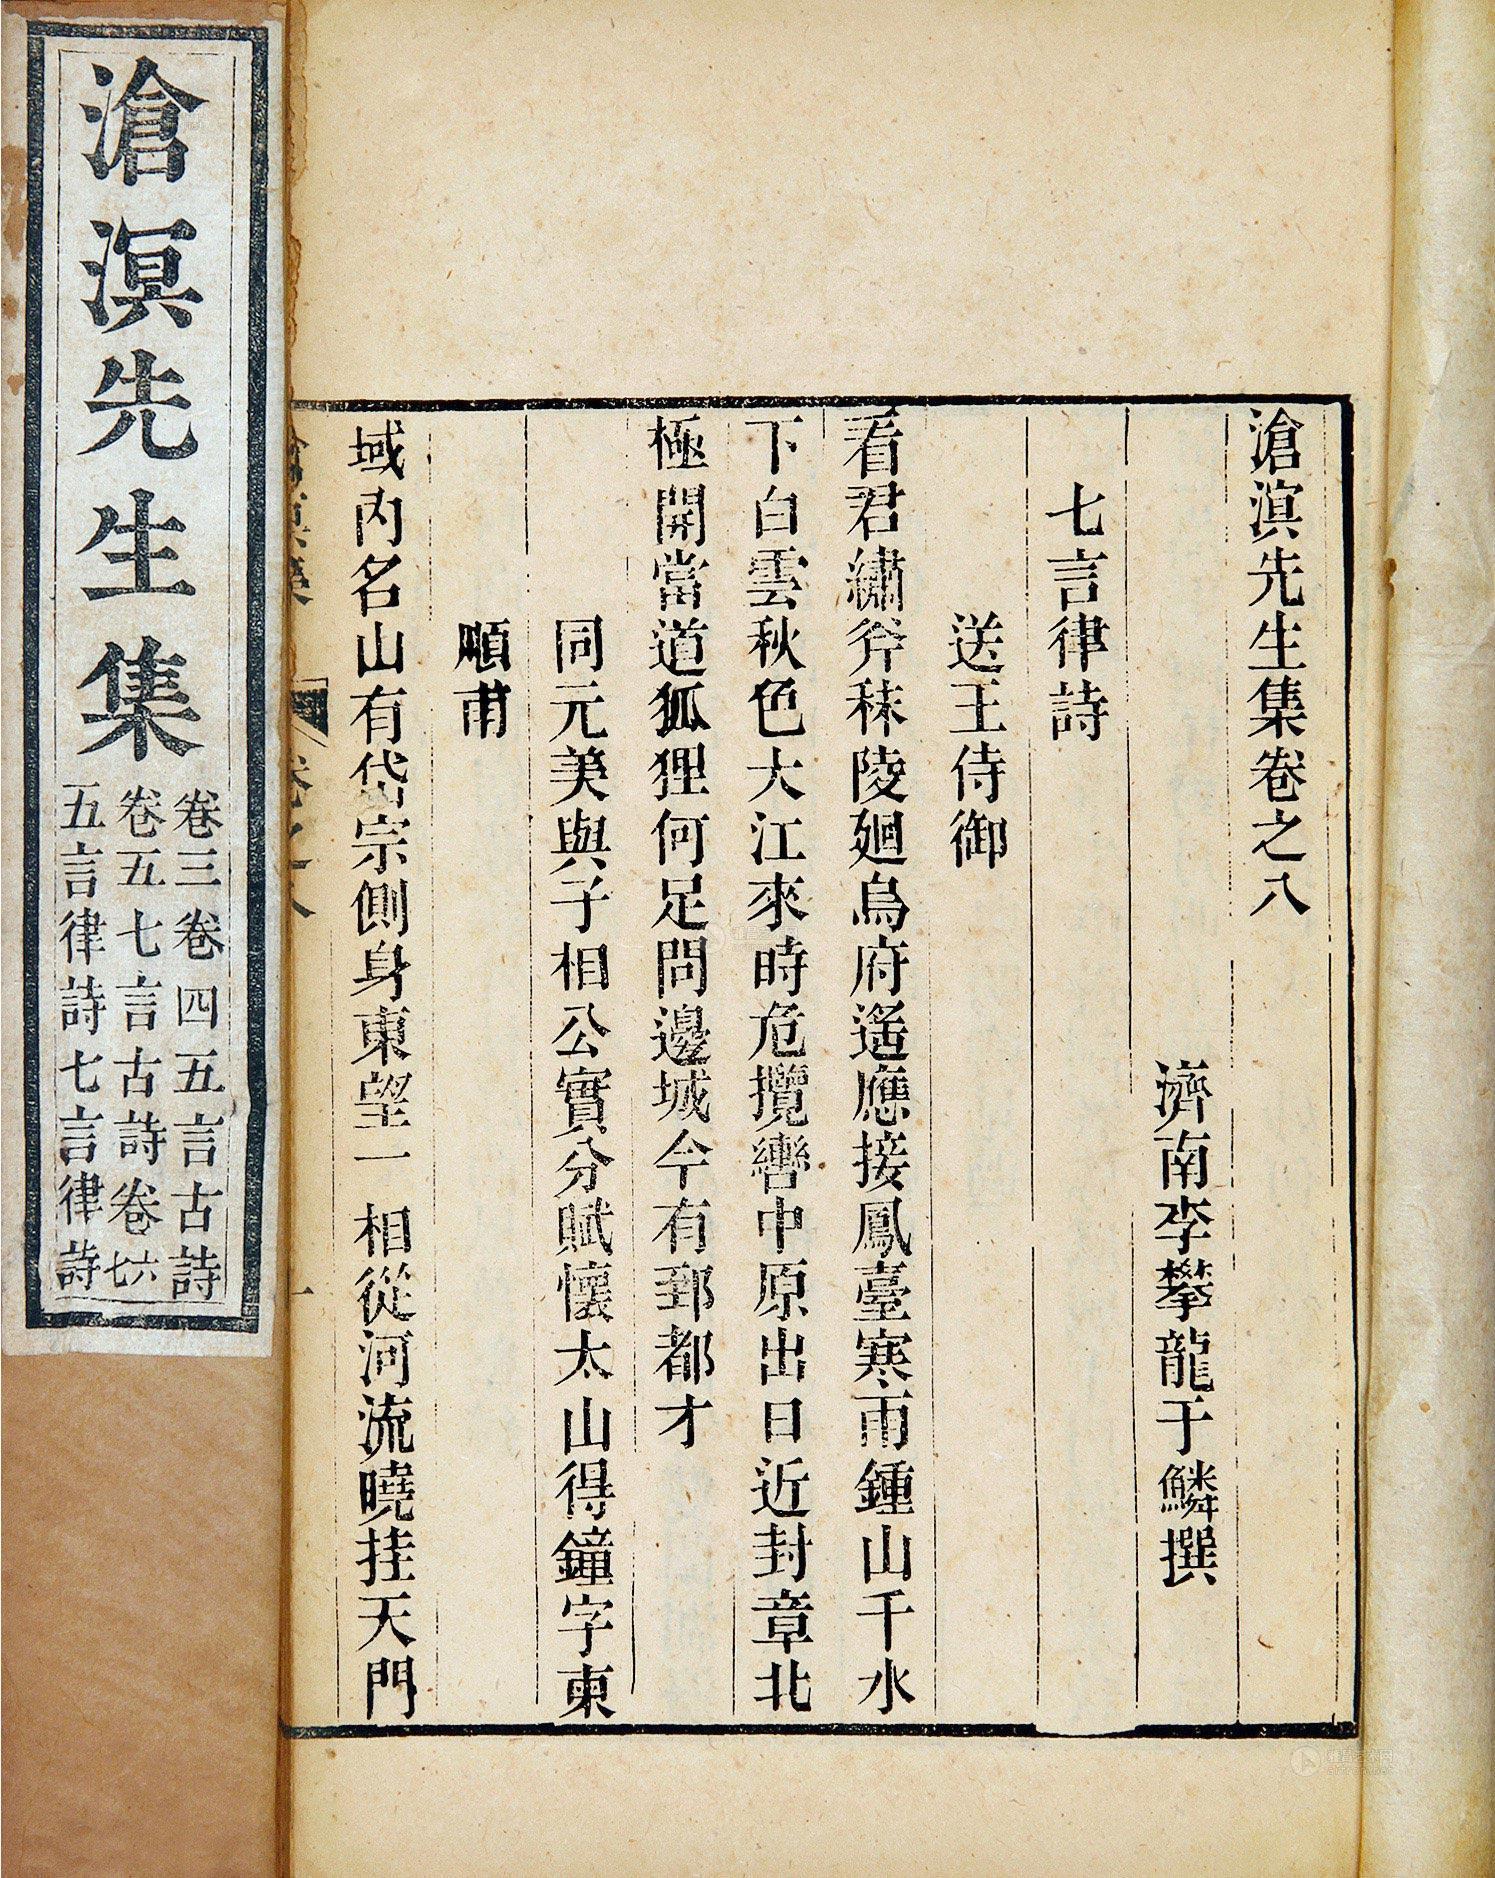 滄溟先生集卷之八
濟南李攀龍于鱗撰
七言律詩
送王侍御
看君繡斧秣陵廻烏府遙應接鳳臺寒雨鍾山千水
下白雲秋色大江來時危攬轡中原出日近封章北
極開當道狐狸何足問邊城今有郅都才
同元美與子相公實分賦懷太山得鐘字柬
順甫
域內名山有岱宗側身東望一相從河流曉挂天門
卷之八
一
滄溟先生集
卷三卷四五言古詩
卷五七言古詩卷六七
五言律詩七言律詩